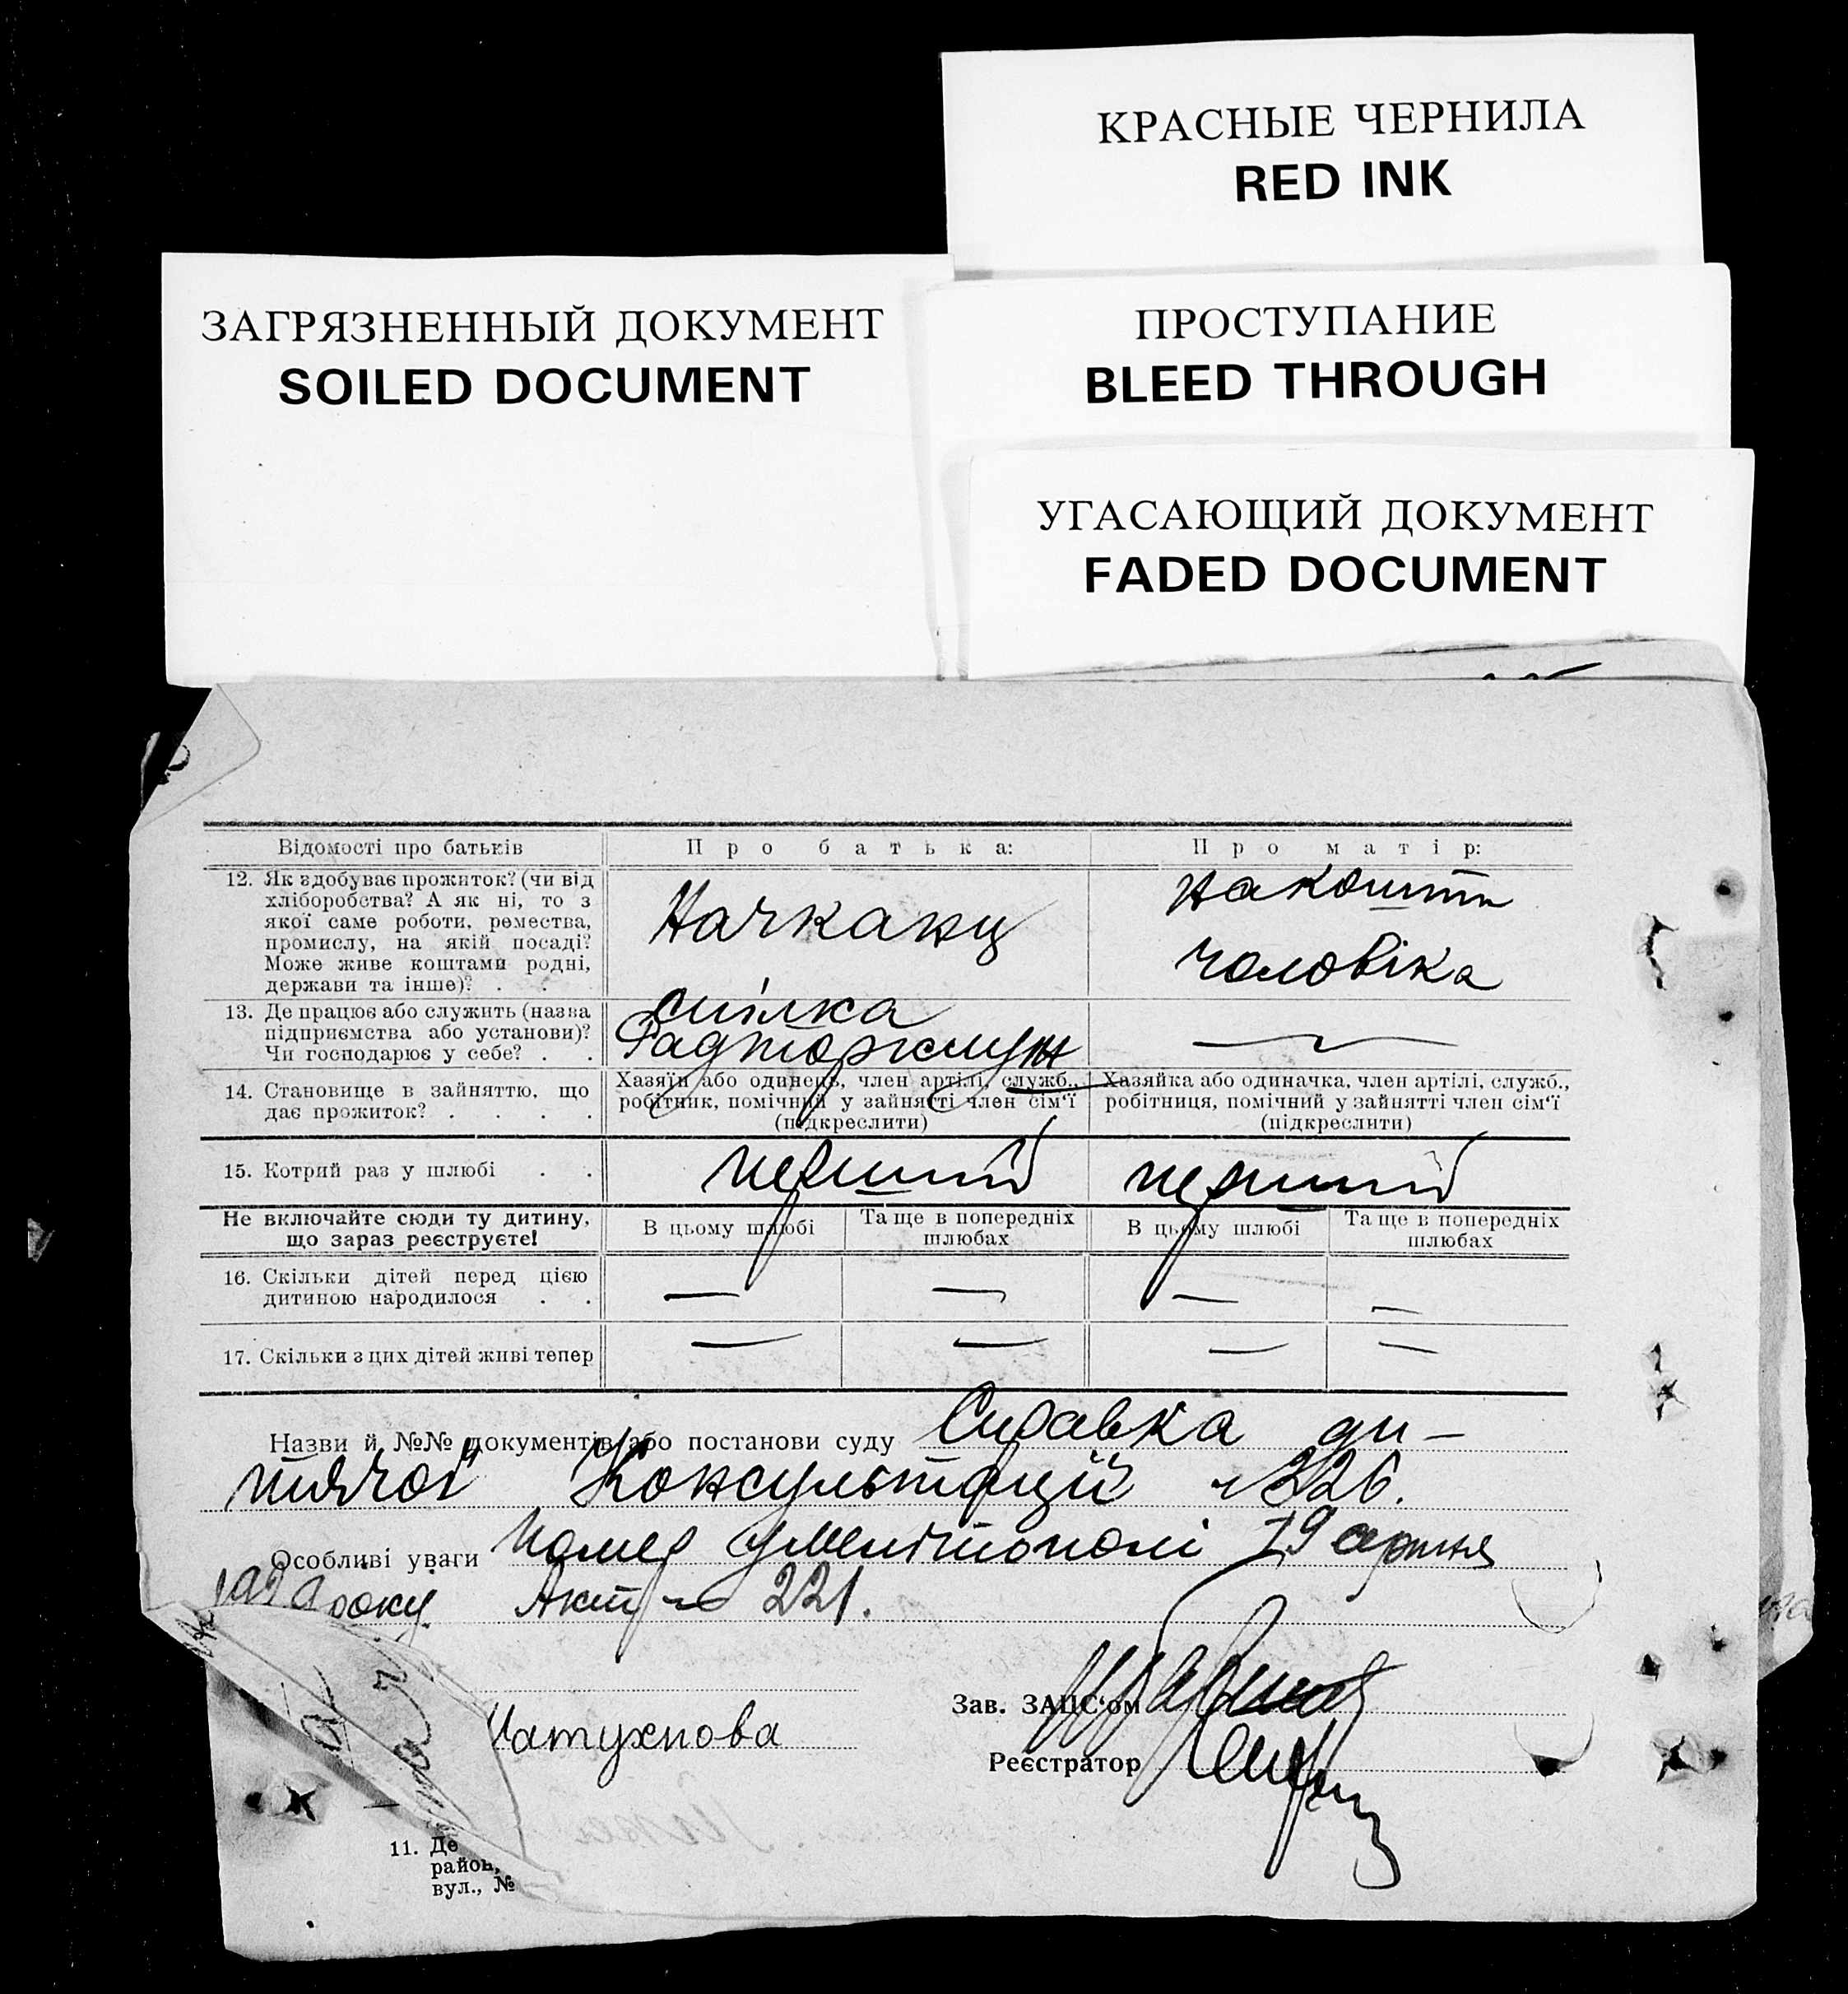 КРАСНЫЕ ЧЕРНИЛА
RED INK
ЗАГРЯЗНЕННЫЙ ДОКУМЕНТ
SOILED DOCUMENT
ПРОСТУПАНИЕ
BLEED THROUGH
УГАСАЮЩИЙ ДОКУМЕНТ
FADED DOCUMENT
Відомості про батьків
Про батька:
Про матір:
12. Як здобуває прожиток? (чи від
хліборобства? А як ні, то з
якої саме роботи, ремества,
промислу, на якій посаді?
Може живе коштами родні,
держави та інше)? . .
Начканц
на кошти
чоловіка
13. Де працює або служить (назва
підприємства або установи)?
Чи господарює у себе? . .
спілка
Радторгслуж
14. Становище в зайняттю, що
дає прожиток? . . . .
Хазяїн або одинець, член артілі, служб.,
робітник, помічний у зайнятті член сім'ї
(підкреслити)
Хазяйка або одиначка, член артілі, служб.,
робітниця, помічний у зайнятті член сім'ї
(підкреслити)
15. Котрий раз у шлюбі . .
перший
перший
Не включайте сюди ту дитину,
що зараз реєструєте!
В цьому шлюбі
Та ще в попередніх
шлюбах
В цьому шлюбі
Та ще в попередніх
шлюбах
16. Скільки дітей перед цією
дитиною народилося . .
— — — —
17. Скільки з цих дітей живі тепер
— — — —
Назви й №№ документів або постанови суду Справка ди-
тячої Консультації №226.
Особливі уваги Помер у Мелітополі 19 серпня
1929 року. Акт № 221.
Зав. ЗАЦС'ом
Реєстратор
11. Де
район,
вул., №